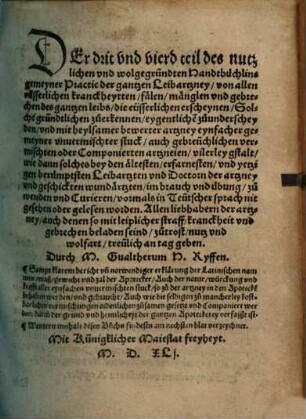 DEr drit vnd vierd teil des nutz
lichen vnd wolgegründten Handtbüchlins
gemeyner Practic der gantzen Leibartzney / von allen
eüsserlichen kranckheytten / fälen / mänglen vnd gebre
chen des gantzen leibs / die eüsserlichen erscheynen / Sol
che gründtlichen zůerkennen / eygentliche zůunderschey
den / vnd mit heylsamer bewerter artzney eynfacher ge
meyner vnuermischter stuck / auch gebreüchlichen ver
mischten oder Componierten artzneien / vilerley gestalt /
wie dann solchs bey den ältesten / erfarnesten / vnd yetzi
gen berümptsten Leibartzten vnd Doctorn der artzney
vnd geschickten wundärtzten / im brauch vnd übung / zů
wenden vnd Curieren / vormals in Teütscher sprach nit
gesehen oder gelesen worden. Allen liebhabern der artz
ney / auch denen so mit leiplicher straff kranckheit vnd
gebrechen beladen seind / zůtrost / nutz vnd
wolfart / treülich an tag geben.
Durch M. Gualtherum H. Ryffen.
vnd notwendiger erklärung der Latinischen nam
men / maß / gewicht vnd zal der Apotecker. Auch der natur / würckung vnd
krafft aller eynfachen vnuermischten stuck / so zů der artzney in den Apoteck
behalten werden / vnd gebraucht / Auch wie die selbigen zů mancherley
lichen vermischungen
den / durch der grund vnd heimlicheyt der gantzen Apoteckerey verfasst ist.
Weittern innhalt dises Bůchs findestu am nechsten blat verzeychnet.
Mit Künigklicher Maiestat freyheyt.
M. D. XLj.